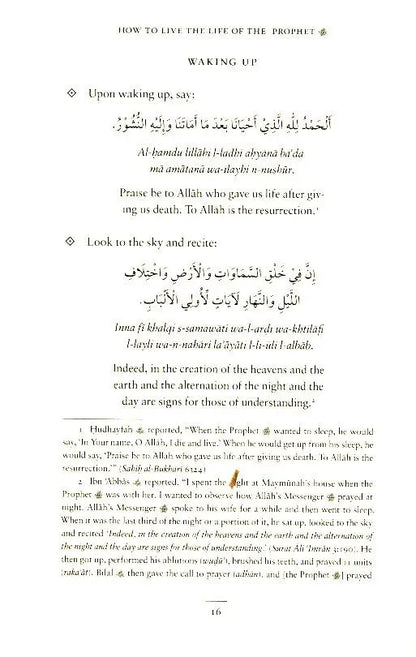 HOW TO LIVE THE LIFE OF THE PROPHET ﷺ
WAKING UP
Upon waking up, say:
اَلْحَمْدُ لِلّٰهِ الَّذِيْ أَحْيَانَا بَعْدَ مَا أَمَاتَنَا وَإِلَيْهِ النُّشُوْرُ.
Al-ḥamdu lillāhi l-ladhi aḥyānā ba'da
mā amātanā wa-ilayhi n-nushūr.
Praise be to Allāh who gave us life after giv-
ing us death. To Allāh is the resurrection.¹
Look to the sky and recite:
إِنَّ فِيْ خَلْقِ السَّمَاوَاتِ وَالْأَرْضِ وَاخْتِلَافِ
اللَّيْلِ وَالنَّهَارِ لَآيَاتٍ لِّأُولِي الْأَلْبَابِ.
Inna fī khalqi s-samawāti wa-l-arḍi wa-khtilāfi
l-layli wa-n-nahāri la'āyāti l-li-uli l-albāb.
Indeed, in the creation of the heavens and the
earth and the alternation of the night and the
day are signs for those of understanding.²
1 Ḥudhayfah reported, "When the Prophet ﷺ wanted to sleep, he would
say, 'In Your name, O Allāh, I die and live.' When he would get up from his sleep, he
would say, 'Praise be to Allāh who gave us life after giving us death. To Allāh is the
resurrection.'" (Ṣaḥīḥ al-Bukhārī 6324)
2 Ibn 'Abbās reported, "I spent the night at Maymūnah's house when the
Prophet ﷺ was with her. I wanted to observe how Allāh's Messenger ﷺ prayed at
night. Allāh's Messenger ﷺ spoke to his wife for a while and then went to sleep.
When it was the last third of the night or a portion of it, he sat up, looked to the sky
and recited 'Indeed, in the creation of the heavens and the earth and the alternation of
the night and the day are signs for those of understanding.' (Surat Āli 'Imrān 3:190). He
then got up, performed his ablutions (wuḍū'), brushed his teeth, and prayed 11 units
(raka'āt). Bilāl then gave the call to prayer (adhān), and [the Prophet ﷺ] prayed
16